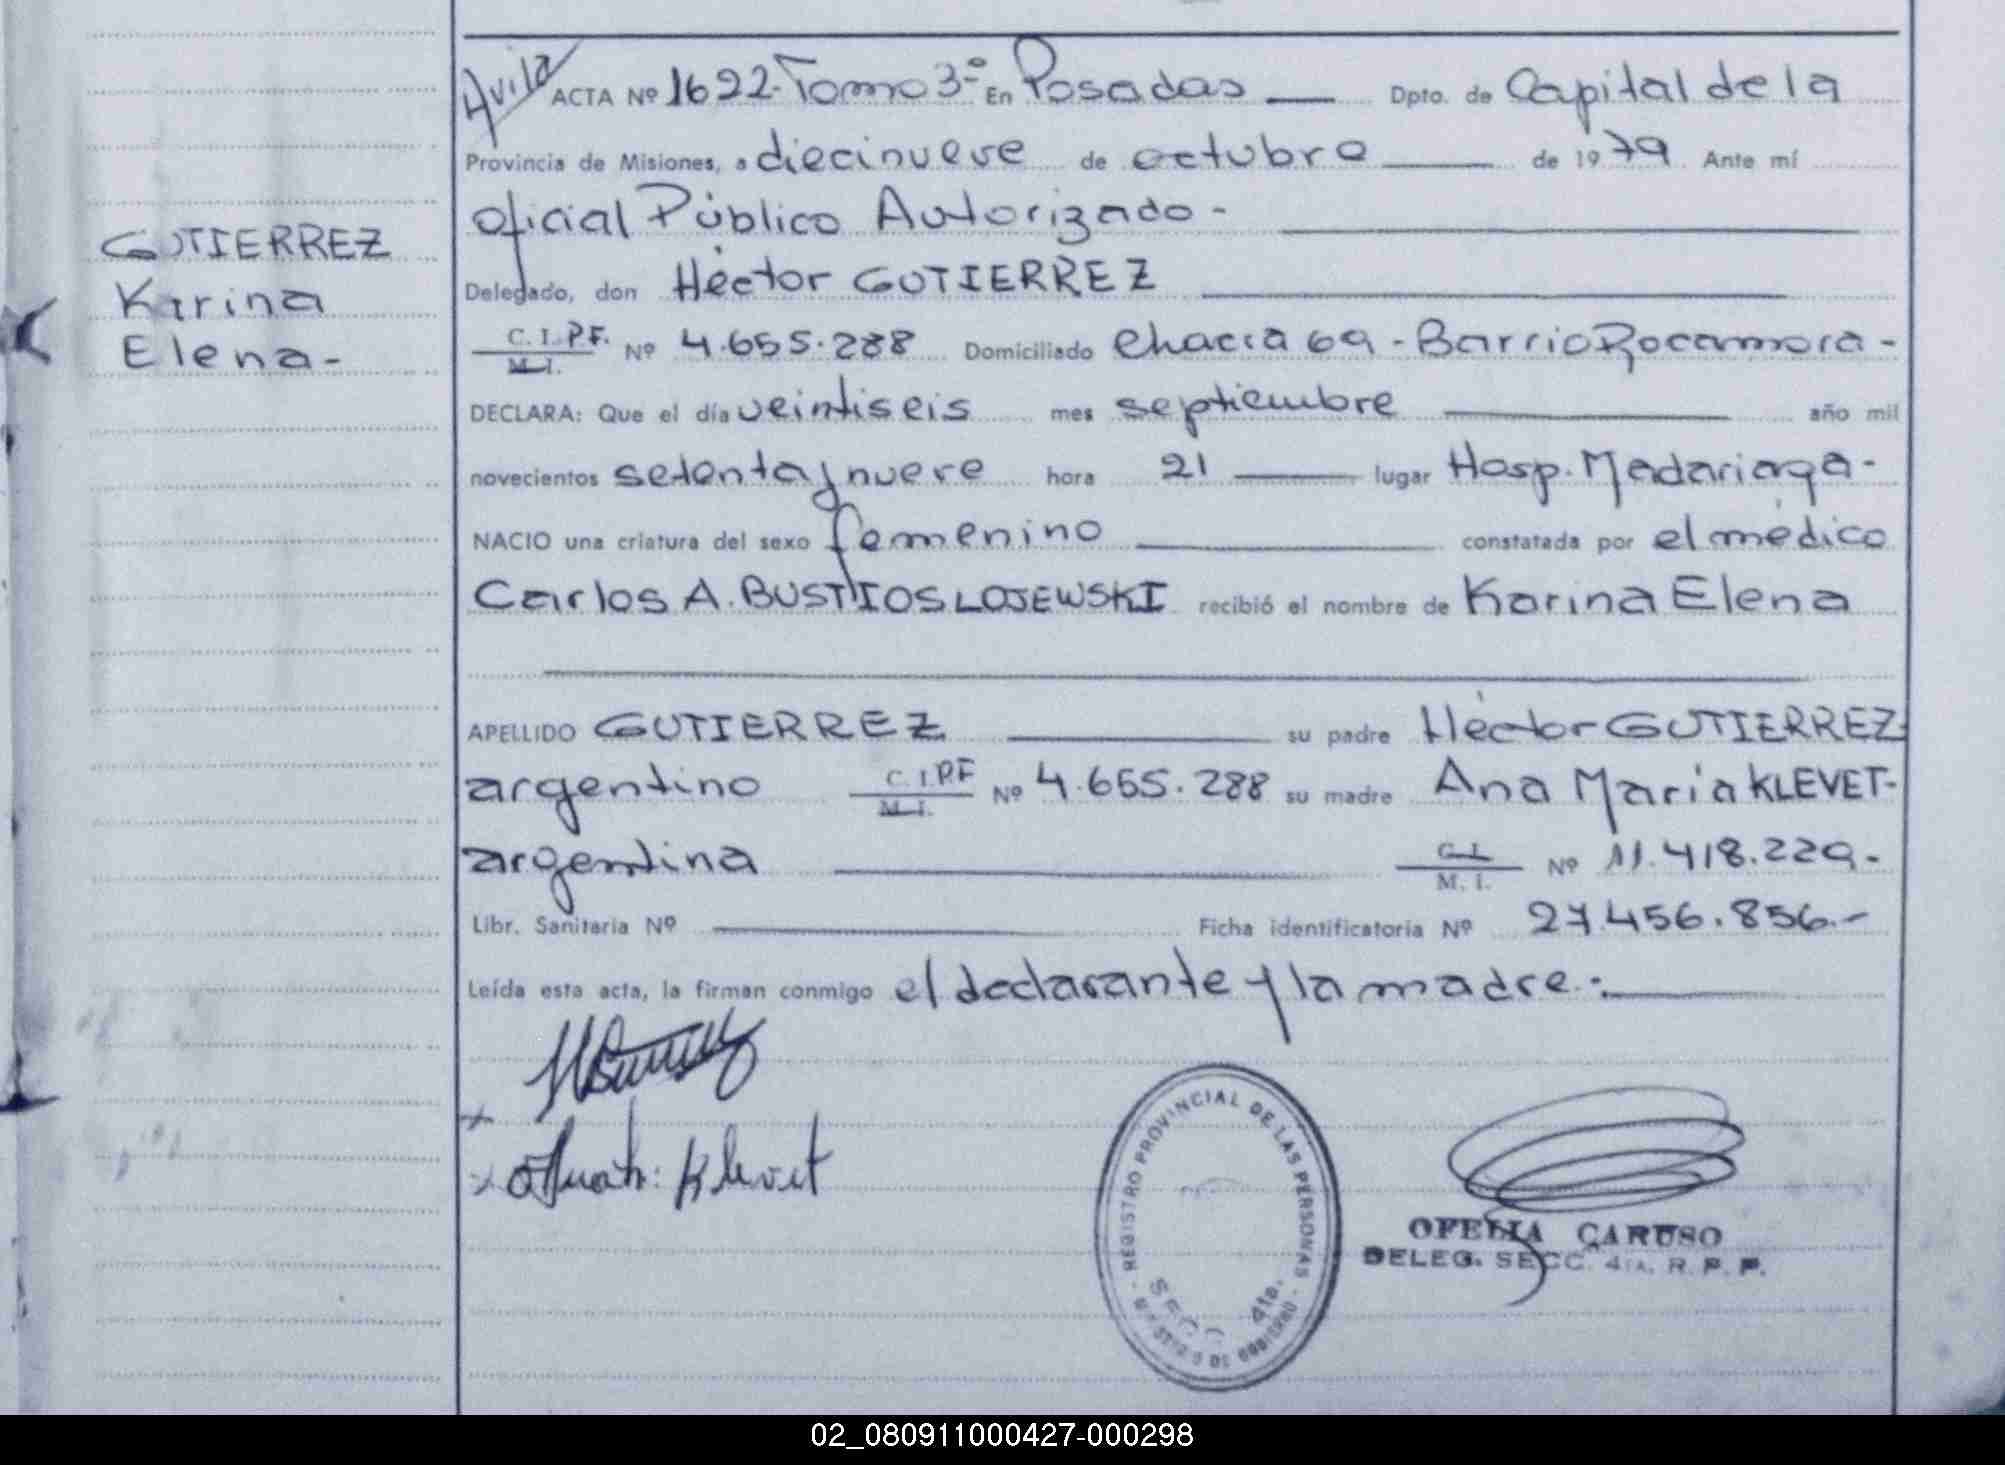 Avila
ACTA Nº 1622. Tomo 3º En Posadas Dpto. de Capital de la
Provincia de Misiones, a diecinueve de octubre de 1979 Ante mí
oficial Público Autorizado -
GUTIERREZ
Karina
Elena -
Delegado, don Héctor GUTIERREZ
C. I. P.F.
M. I. Nº 4.655.288 Domiciliado Chacra 69 - Barrio Rocamora -
DECLARA: Que el día veintiseis mes septiembre año mil
novecientos setenta y nueve hora 21 lugar Hosp. Madariaga -
NACIO una criatura del sexo femenino constatada por el médico
Carlos A. BUSTIOS LOJEWSKI recibió el nombre de Karina Elena
APELLIDO GUTIERREZ su padre Héctor GUTIERREZ
argentino C. I. P.F
M. I. Nº 4.655.288 su madre Ana María KLEVET -
argentina C. I.
M. I. Nº 11.418.229. -
Libr. Sanitaria Nº Ficha identificatoria Nº 27.456.856. -
Leída esta acta, la firman conmigo el declarante y la madre. -
Klevet
REGISTRO PROVINCIAL DE LAS PERSONAS
SECC. 4ta.
MINISTERIO DE GOBIERNO
OFELIA CARUSO
DELEG. SECC. 4TA. R. P. P.
02_080911000427-000298